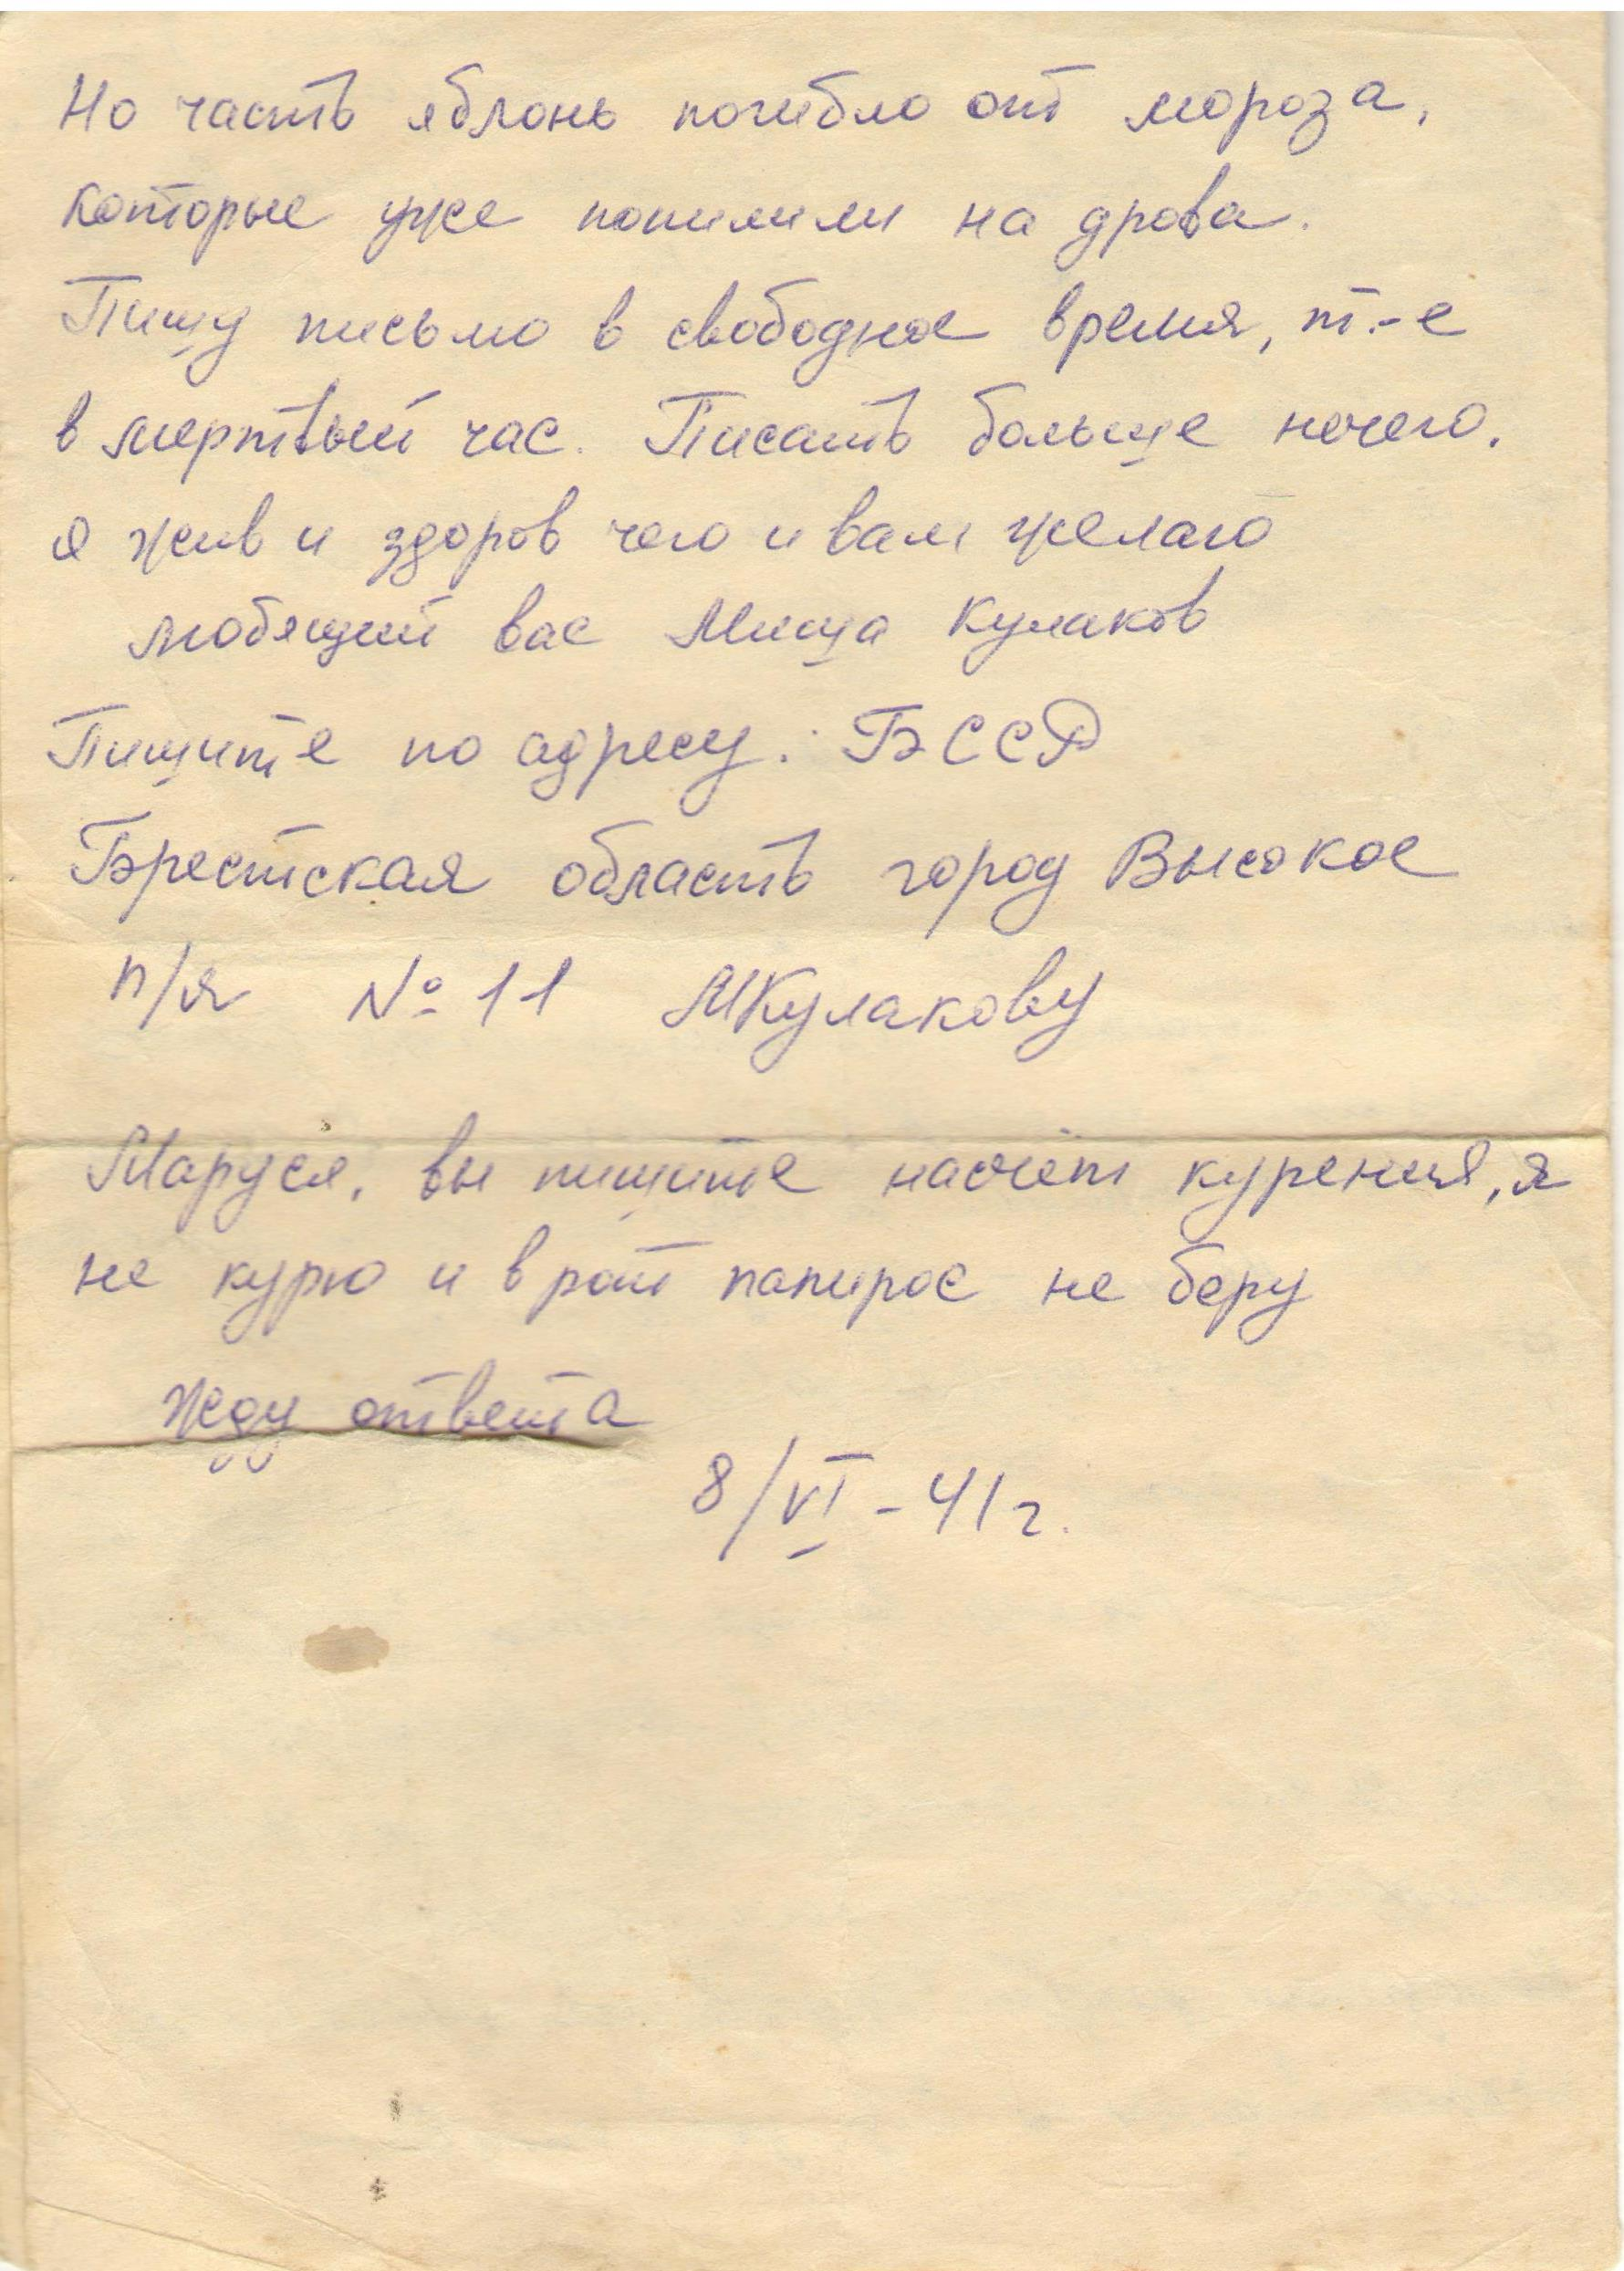 Но часть яблонь погибло от мороза,
которые уже попилили на дрова.
Пишу письмо в свободное время, т.-е
в мертвый час. Писать больше нечего.
я жив и здоров чего и вам желаю
любящий вас Миша Кулаков
Пишите по адресу: БССР
Брестская область город Высокое
п/я № 11 МКулакову
Маруся, вы пишите насчёт курения, я
не курю и в рот папирос не беру
Жду ответа
8/VI - 41 г.